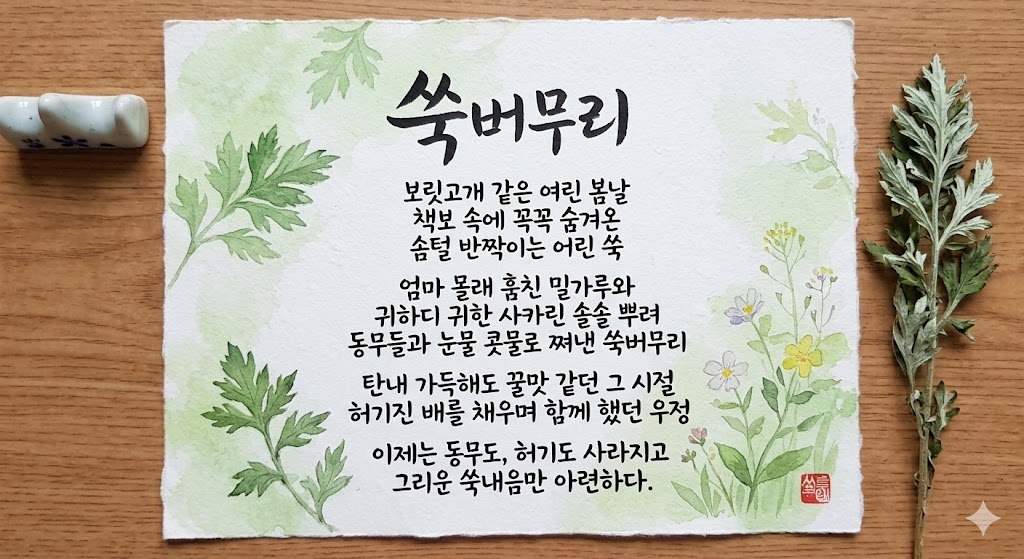 쑥버무리
보릿고개 같은 여린 봄날
책보 속에 꼭꼭 숨겨온
솜털 반짝이는 어린 쑥
엄마 몰래 훔친 밀가루와
귀하디 귀한 사카린 솔솔 뿌려
동무들과 눈물 콧물로 쪄낸 쑥버무리
탄내 가득해도 꿀맛 같던 그 시절
허기진 배를 채우며 함께 했던 우정
이제는 동무도, 허기도 사라지고
그리운 쑥내음만 아련하다.